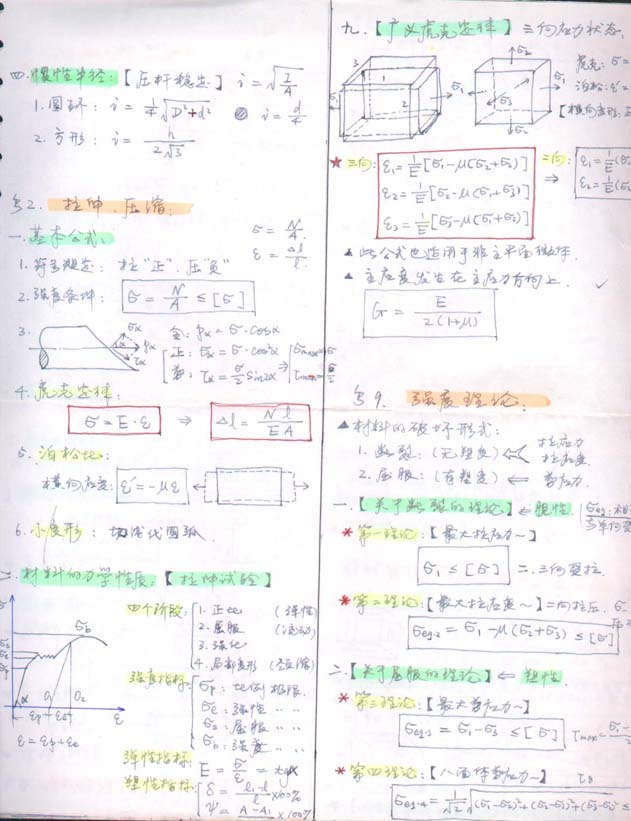 四.惯性半径:【压杆稳定】 i = √(I/A)
1. 圆环: i = 1/4 √(D²+d²) i = d/4
2. 方形: i = h/(2√3)
§2. 拉伸.压缩:
一.基本公式: σ = N/A
ε = Δl/l
1. 符号规定: 拉"正".压"负"
2. 强度条件: σ = N/A ≤ [σ]
3. σα pα τα α
全: pα = σ·cosα
正: σα = σ·cos²α
τα = σ/2 sin2α ⇒
4. 虎克定律:
σ = E·ε ⇒ Δl = Nl/EA
5. 泊松比:
横向应度: ε' = -με
6. 小变形: 切线代圆弧.
二.材料的力学性质:【拉伸试验】
四个阶段: 1. 正比 (弹性)
2. 屈服 (流动)
3. 强化
4. 局部变形
强度指标: σp: 比例极限.
σe: 弹性 〃 〃
σs: 屈服 〃 〃
σb: 强度 〃 〃
σb
α O₁ O₂ ε
εp εe
ε = εp + εe
弹性指标: E = σ/ε = tgα
塑性指标: δ = (l₁-l)/l ×100%
ψ = (A-A₁)/A ×100%
九.【广义虎克定律】 三向应力状态:
3 1 2 σ1 σ2 σ3
虎克: σ =
泊松: ε' =
【横向变形:
★ 三向: ε1 = 1/E [σ1-μ(σ2+σ3)]
ε2 = 1/E [σ2-μ(σ1+σ3)]
ε3 = 1/E [σ3-μ(σ1+σ2)]
⇒ 二向: ε1 = 1/E (σ
ε2 = 1/E (σ
▲ 此公式也适用于非主平面微体.
▲ 主应变发生在主应力方向上.
G = E/(2(1+μ))
§9. 强度理论:
▲材料的破坏形式:
1. 断裂: (无塑变) ⇐ 拉应力
拉应变
2. 屈服: (有塑变) ⇐ 剪应力
一.【关于断裂的理论】⇐ 脆性.
* 第一理论:【最大拉应力~】
σ1 ≤ [σ] 二.三向受拉.
* 第二理论:【最大拉应变~】
σeq·2 = σ1-μ(σ2+σ3) ≤ [σ]
二.【关于屈服的理论】⇐ 塑性
* 第三理论:【最大剪应力~】
σeq·3 = σ1-σ3 ≤ [σ] τmax =
* 第四理论:【八面体剪应力~】 τ8
σeq·4 = 1/√2 √((σ1-σ2)²+(σ2-σ3)²+(σ3-σ1)²) ≤